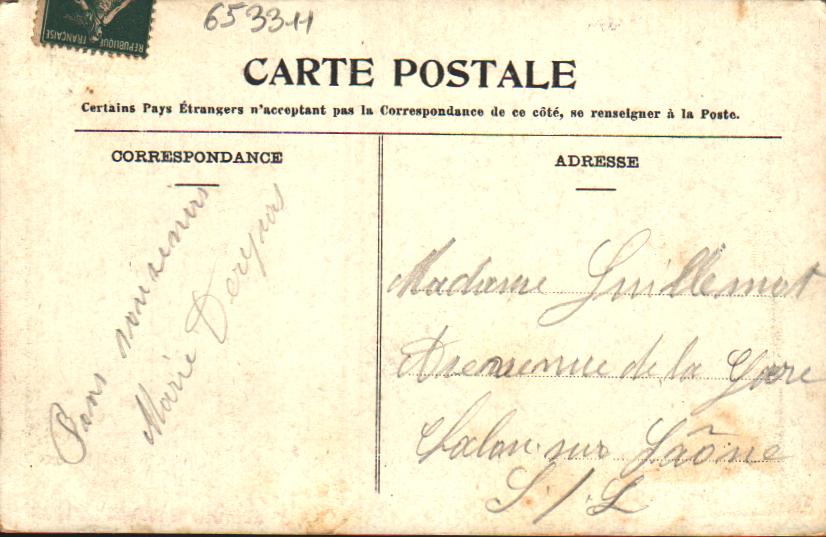 REPUBLIQUE FRANÇAISE
65 33 11
CARTE POSTALE
Certains Pays Étrangers n'acceptant pas la Correspondance de ce côté, se renseigner à la Poste.
CORRESPONDANCE
Bons souvenirs
Marie
ADRESSE
Madame Guillemot
Avenue de la Gare
Chalon sur Saône
S/L